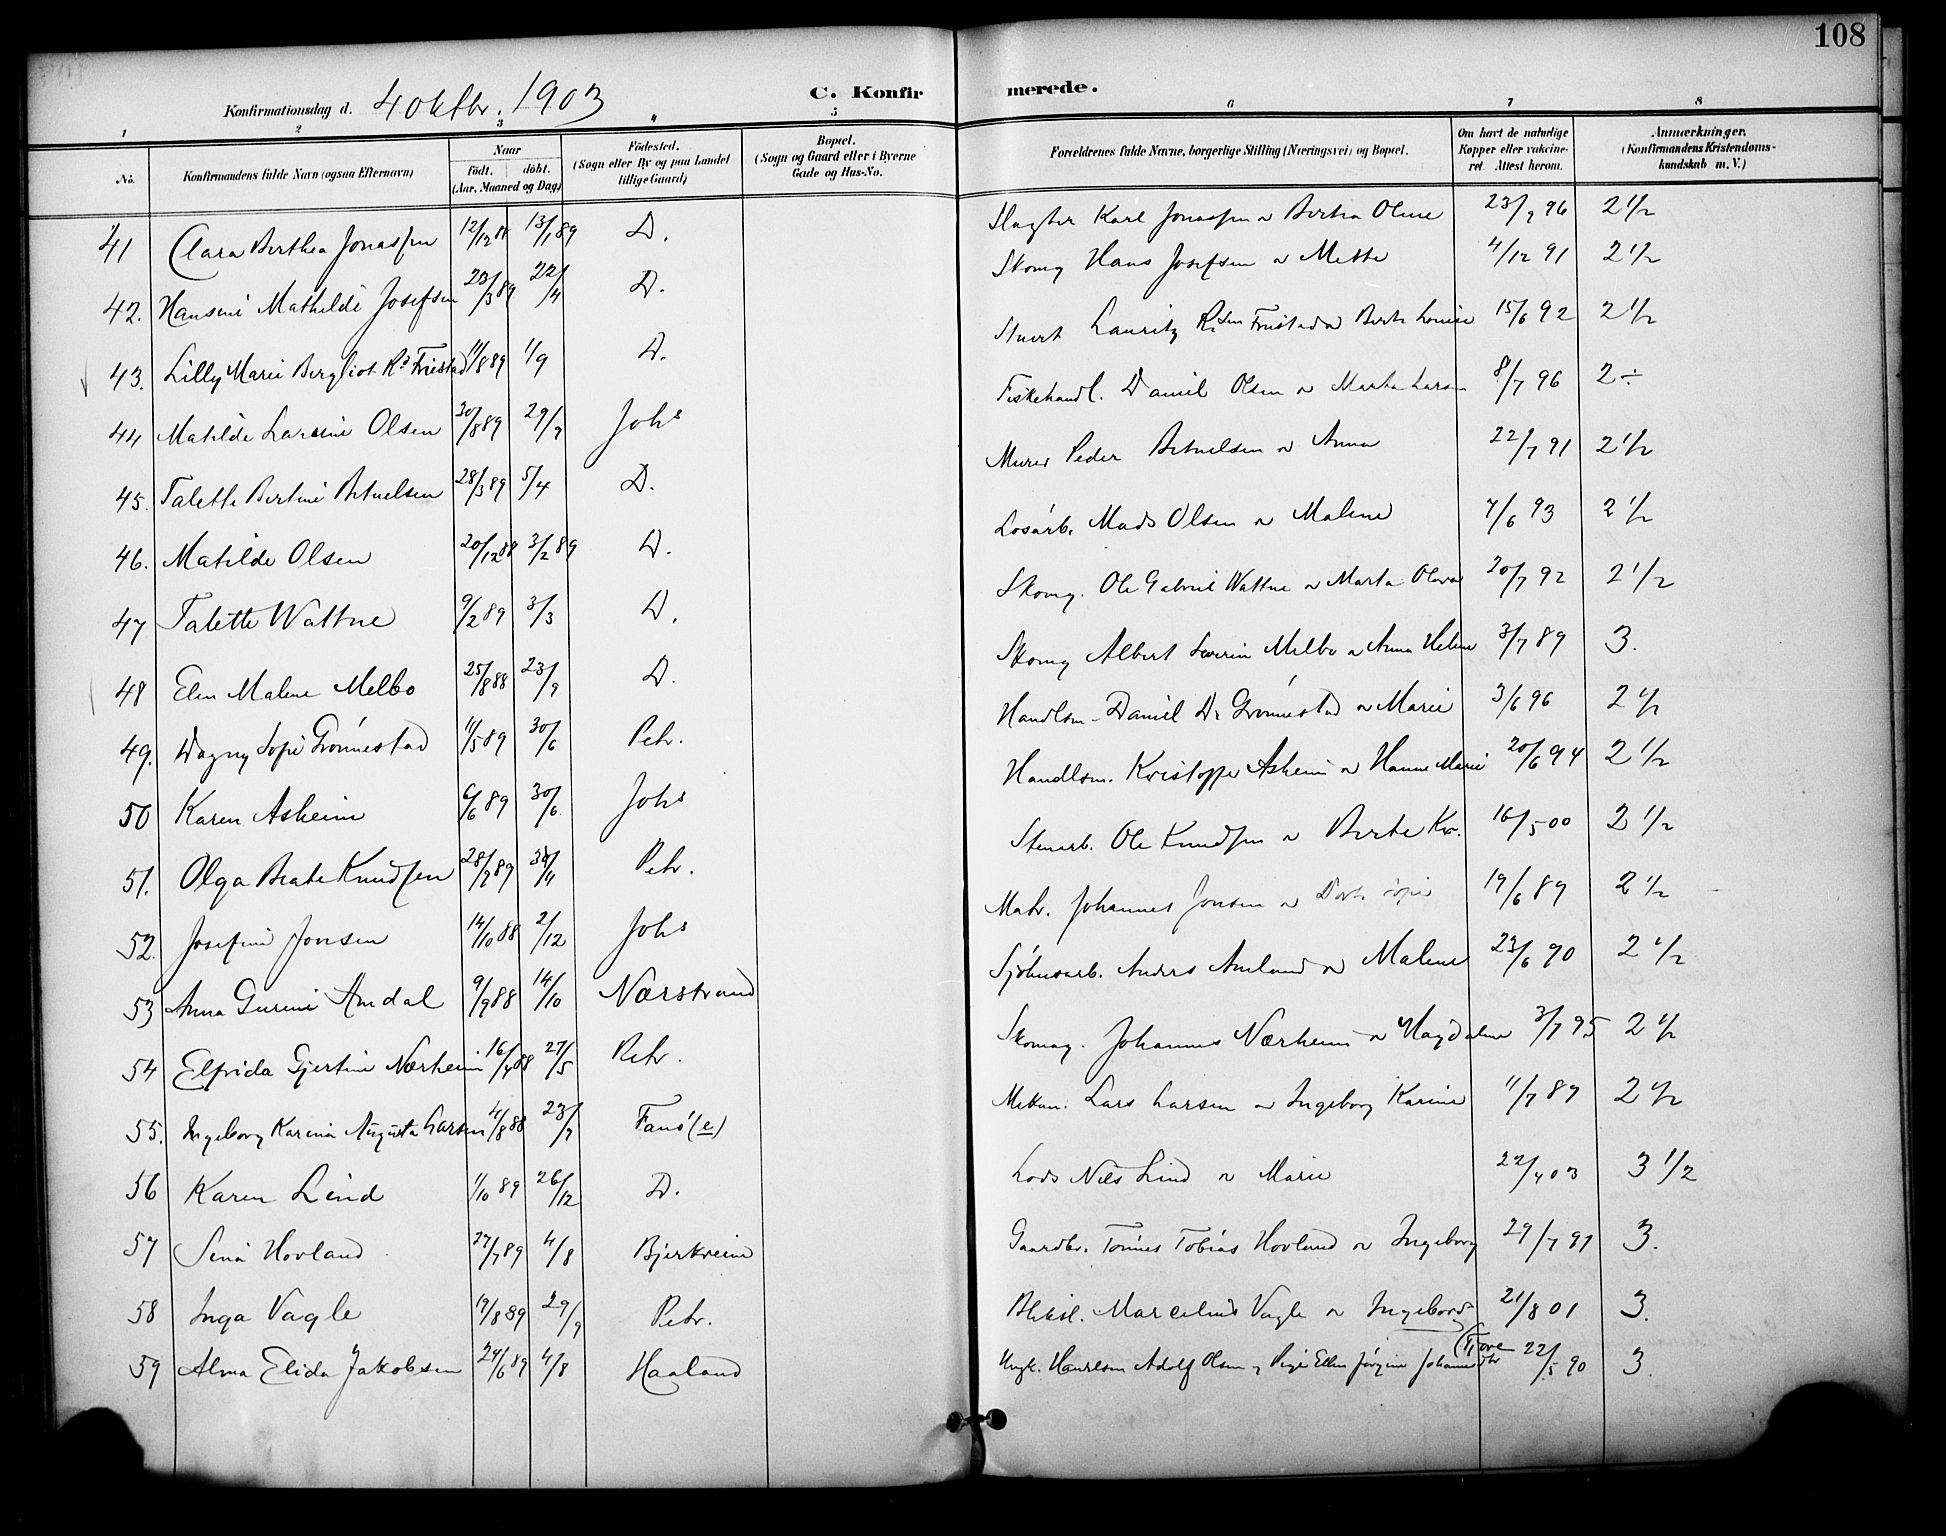 108
Konfirmationsdag d. 4 oktbr. 1903
C. Konfirmerede.
1 2 3 4 5 6 7 8
No.
Konfirmandens fulde Navn (ogsaa Efternavn)
Naar födt. döbt. (Aar, Maaned og Dag)
Födested. (Sogn eller By og paa Landet tillige Gaard)
Bopæl. (Sogn og Gaard eller i Byerne Gade og Hus-No.
Forældrenes fulde Navne, borgerlige Stilling (Næringsvei) og Bopæl.
Om havt de naturlige Kopper eller vakcineret. Attest herom.
Anmærkninger. (Konfirmandens Kristendomskundskab m. V.)
41 Clara Berthea Jonassen 12/12 88 13/1 89 D. Slagter Karl Jonassen o Bertha Oline 23/9 96 2 1/2
42. Hansine Mathilde Josefsen 23/3 89 22/4 D. Skomg Hans Josefsen o Mette 4/12 91 2 1/2
43. Lilly Marie Bergliot Rs Fristad 11/8 89 1/9 D. Stuert Lauritz R.sen Fristad o Berte Lovise 15/6 92 2 1/2
44 Matilde Larsine Olsen 30/8 89 29/9 Johs Fiskehandl. Daniel Olsen o Marta Larsen 8/7 96 2 ÷
45. Talette Bertine Betuelsen 28/3 89 5/4 D. Murer Peder Betuelsen o Anna 22/7 91 2 1/2
46. Matilde Olsen 20/12 88 3/2 89 D. Løsarb. Mads Olsen o Malene 7/6 93 2 1/2
47 Talette Wattne 9/2 89 3/3 D. Skomg. Ole Gabriel Wattne o Marta Olava 20/7 92 2 1/2
48 Elen Malene Melbo 25/8 88 23/9 D. Skomg Albert Severin Melbo o Anna Helene 3/7 89 3.
49. Dagny Sofie Grönnestad 11/5 89 30/6 Petr. Handlsm. Daniel D. Grönnestad o Marie 3/6 96 2 1/2
50 Karen Asheim 6/6 89 30/6 Johs Handlsm. Kristoffer Asheim o Hanne Marie 20/6 94 2 1/2
51. Olga Beate Knudsen 28/2 89 /4 Petr. Stenarb. Ole Knudsen o Berte Kr. 16/5 00 2 1/2
52. Josefine Jonsen 14/10 88 2/12 Johs Matr. Johannes Jonsen o Dort. Sofie 19/6 89 2 1/2
53 Anna Gurine Amdal 9/9 88 14/10 Nærstrand Sjöhusarb. Anders Amland o Malene 23/6 90 2 1/2
54 Elfrida Gjertine Nærheim 16/4 88 27/5 Petr. Skomag. Johannes Nærheim o Magdalene 3/7 95 2 1/2
55. Ingeborg Karina Augusta Larsen 4/8 88 23/9 Fanö (e) Mekan. Lars Larsen o Ingeborg Karine 11/7 89 2 1/2
56 Karen Lind 1/10 89 26/12 D. Lods Nils Lind o Marie 22/4 03 3 1/2
57 Sina Hovland 27/7 89 4/8 Bjerkreim Gaardbr. Tönnes Tobias Hovland o Ingeborg 29/7 91 3.
58 Inga Vagle 19/8 89 29/9 Petr. Bliksl. Marcelius Vagle o Ingeborg 21/8 01 3.
59 Alma Elida Jakobsen 24/6 89 4/8 Haaland Ungk. Handlsm Adolf Olsen o Pige Ellen Jörgine Johannesdtr (Tore 22/5 90 3.